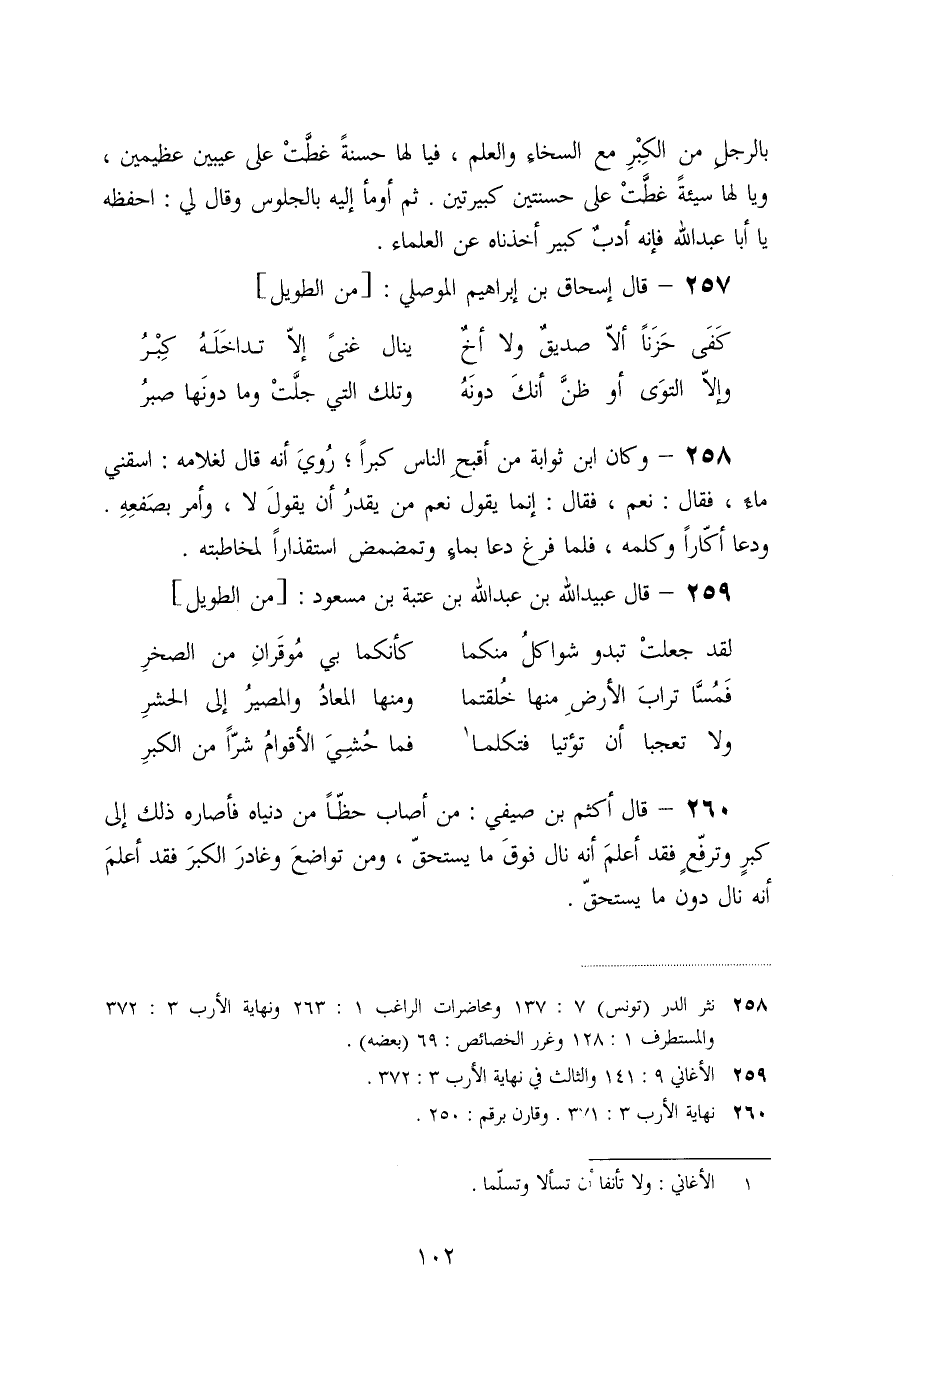 بالرجلِ من الكِبْرِ مع السخاءِ والعلم ، فيا لها حسنةً غطَّتْ على عيبين عظيمين ،
ويا لها سيئةً غطَّتْ على حسنتين كبيرتين . ثم أومأ إليه بالجلوس وقال لي : احفظه
يا أبا عبدالله فإنه أدبٌ كبير أخذناه عن العلماء .
٢٥٧ – قال إسحاق بن إبراهيم الموصلي : [من الطويل]
كَفَى حَزَناً ألاّ صديقٌ ولا أخٌ ينال غنىً إلاّ تداخَلَهُ كِبْرُ
وإلاّ التوَى أو ظنَّ أنكَ دونَهُ وتلك التي جلَّتْ وما دونَها صبرُ
٢٥٨ – وكان ابن ثوابة من أقبحِ الناس كبراً ؛ رُويَ أنه قال لغلامه : اسقني
ماء ، فقال : نعم ، فقال : إنما يقول نعم من يقدرُ أن يقولَ لا ، وأمر بصَفعِهِ .
ودعا أكّاراً وكلمه ، فلما فرغ دعا بماءٍ وتمضمض استقذاراً لمخاطبته .
٢٥٩ – قال عبيدالله بن عبدالله بن عتبة بن مسعود : [من الطويل]
لقد جعلتْ تبدو شواكلُ منكما كأنكما بي مُوقَرانِ من الصخرِ
فَمُسَّا ترابَ الأرضِ منها خُلقتما ومنها المعادُ والمصيرُ إلى الحشرِ
ولا تعجبا أن تؤتيا فتكلما١ فما حُشِيَ الأقوامُ شرّاً من الكبرِ
٢٦٠ – قال أكثم بن صيفي : من أصاب حظّاً من دنياه فأصاره ذلك إلى
كبرٍ وترفّعٍ فقد أعلمَ أنه نال فوقَ ما يستحقّ ، ومن تواضعَ وغادرَ الكبرَ فقد أعلمَ
أنه نال دون ما يستحقّ .
٢٥٨ نثر الدر (تونس) ٧ : ١٣٧ ومحاضرات الراغب ١ : ٢٦٣ ونهاية الأرب ٣ : ٣٧٢
والمستطرف ١ : ١٢٨ وغرر الخصائص : ٦٩ (بعضه) .
٢٥٩ الأغاني ٩ : ١٤١ والثالث في نهاية الأرب ٣ : ٣٧٢ .
٢٦٠ نهاية الأرب ٣ : . وقارن برقم : ٢٥٠ .
١ الأغاني : ولا تأنفا أن تسألا وتسلّما .
١٠٢